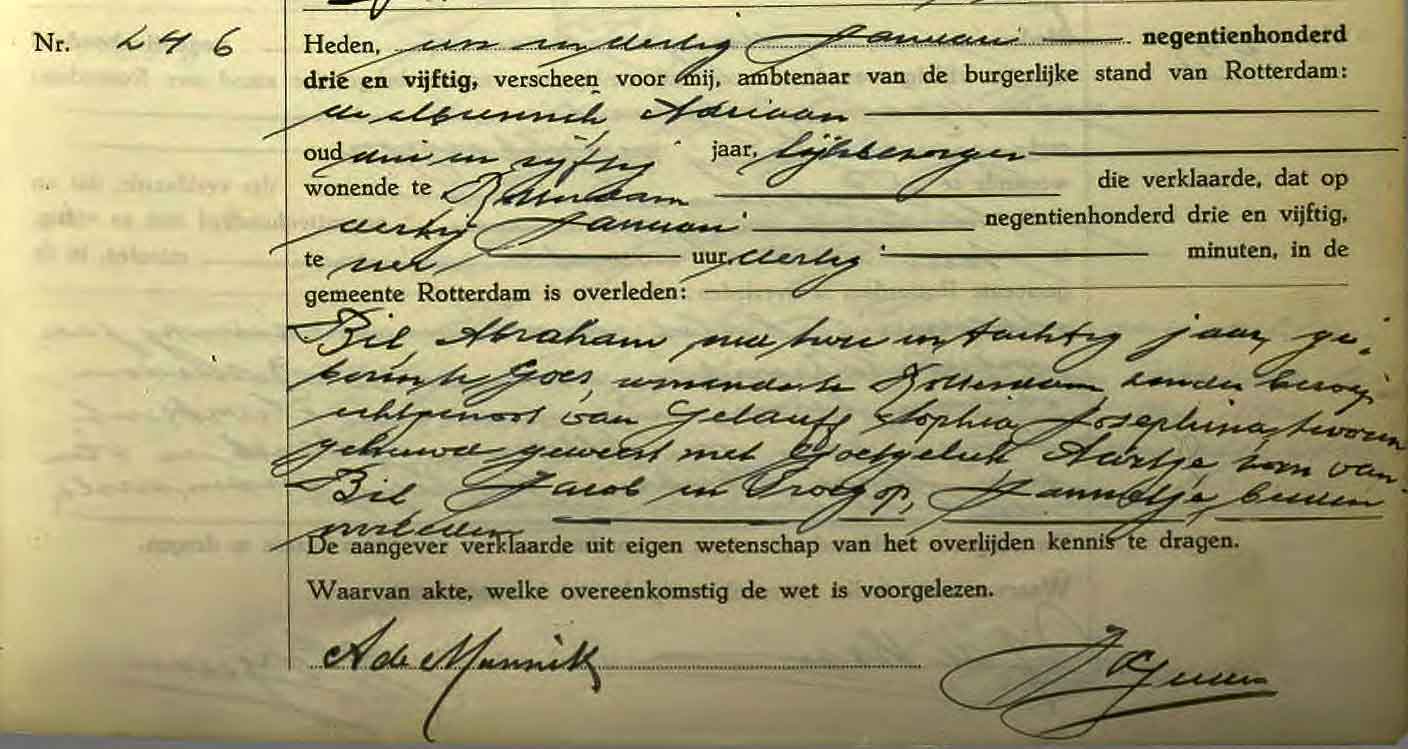 Nr. 246 Heden, een en dertig Januari negentienhonderd
drie en vijftig, verscheen voor mij, ambtenaar van de burgerlijke stand van Rotterdam:
de Munnik Adriaan
oud drie en vijftig jaar, lijkbezorger
wonende te Rotterdam die verklaarde, dat op
dertig Januari negentienhonderd drie en vijftig,
te uur dertig minuten, in de
gemeente Rotterdam is overleden:
Bil, Abraham oud twee en tachtig jaar, ge-
boren te Goes, wonende te Rotterdam zonder beroep
echtgenoot van Gelauff Sophia Josephina, tevoren
gehuwd geweest met Goetgeluk Aartje, zoon van
Bil Jacob en Jannetje, beiden
overleden
De aangever verklaarde uit eigen wetenschap van het overlijden kennis te dragen.
Waarvan akte, welke overeenkomstig de wet is voorgelezen.
A de Munnik